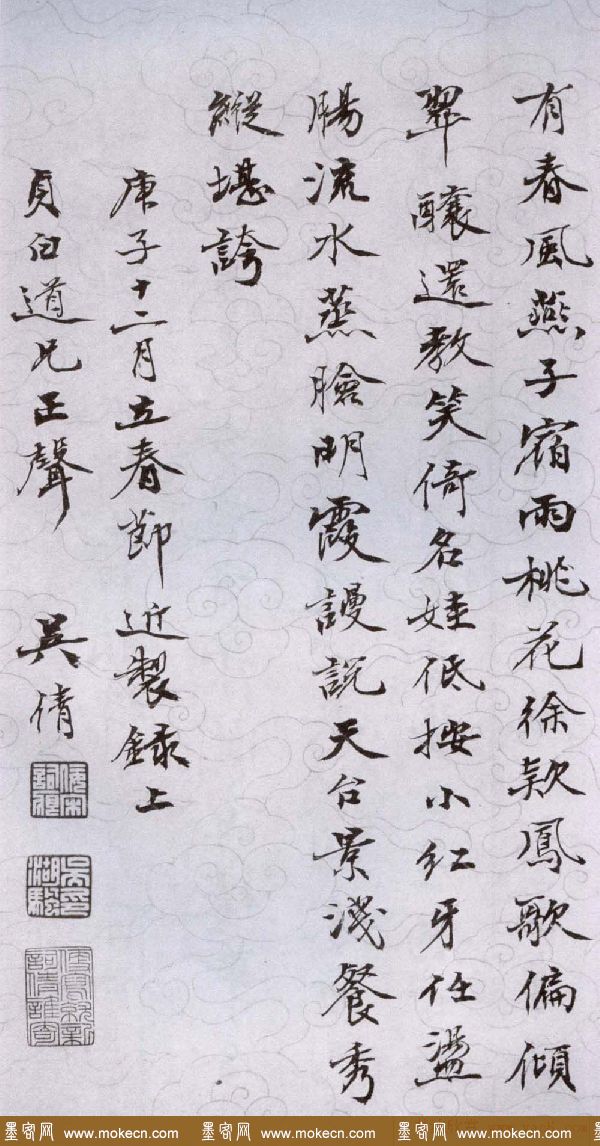 有春風燕子宿雨桃花徐款鳳歌偏傾
翠釀還教笑倚名娃低按小紅牙任盪
腸流水蒸臉明霞謾說天台景淺餐秀
縱堪誇
庚子十二月立春節近製錄上
貞白道兄正聲 吳倩
佞宋詞痕
吳印湖颿
墨客网 www.mokecn.com 墨客网 www.mokecn.com 墨客网 www.mokecn.com